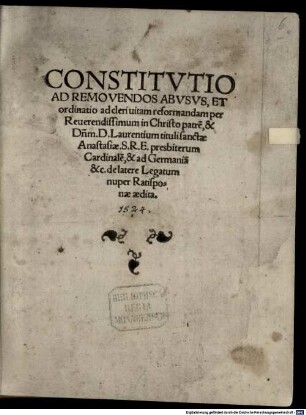 CONSTITVTIO
AD REMOVENDOS ABVSVS, ET
ordinatio ad cleri uitam reformandam per
Reuerendissimum in Christo patrē, &
Dñm. D. Laurentium tituli sanctæ
Anastasiæ. S. R. E. presbiterum
Cardinalē, & ad Germaniā
&c. de latere Legatum
nuper Ratispo-
næ ædita.
1524.
BIBLIOTHECA
REGIA
MONACENSIS